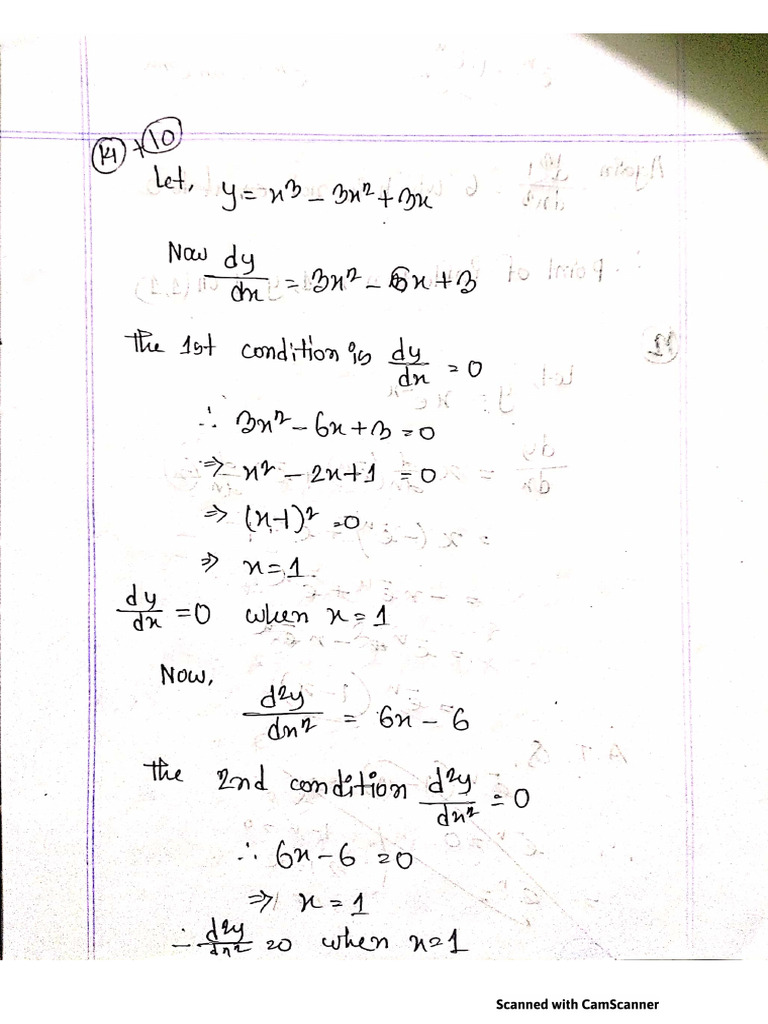 14 + 10
Let, y = x³ − 3x² + 3x
Now dy/dx = 3x² − 6x + 3
the 1st condition is dy/dx = 0
∴ 3x² − 6x + 3 = 0
⇒ x² − 2x + 1 = 0
⇒ (x−1)² = 0
⇒ x = 1.
dy/dx = 0 when x = 1
Now,
d²y/dx² = 6x − 6
the 2nd condition d²y/dx² = 0
∴ 6x − 6 = 0
⇒ x = 1
∴ d²y/dx² = 0 when x = 1
Scanned with CamScanner